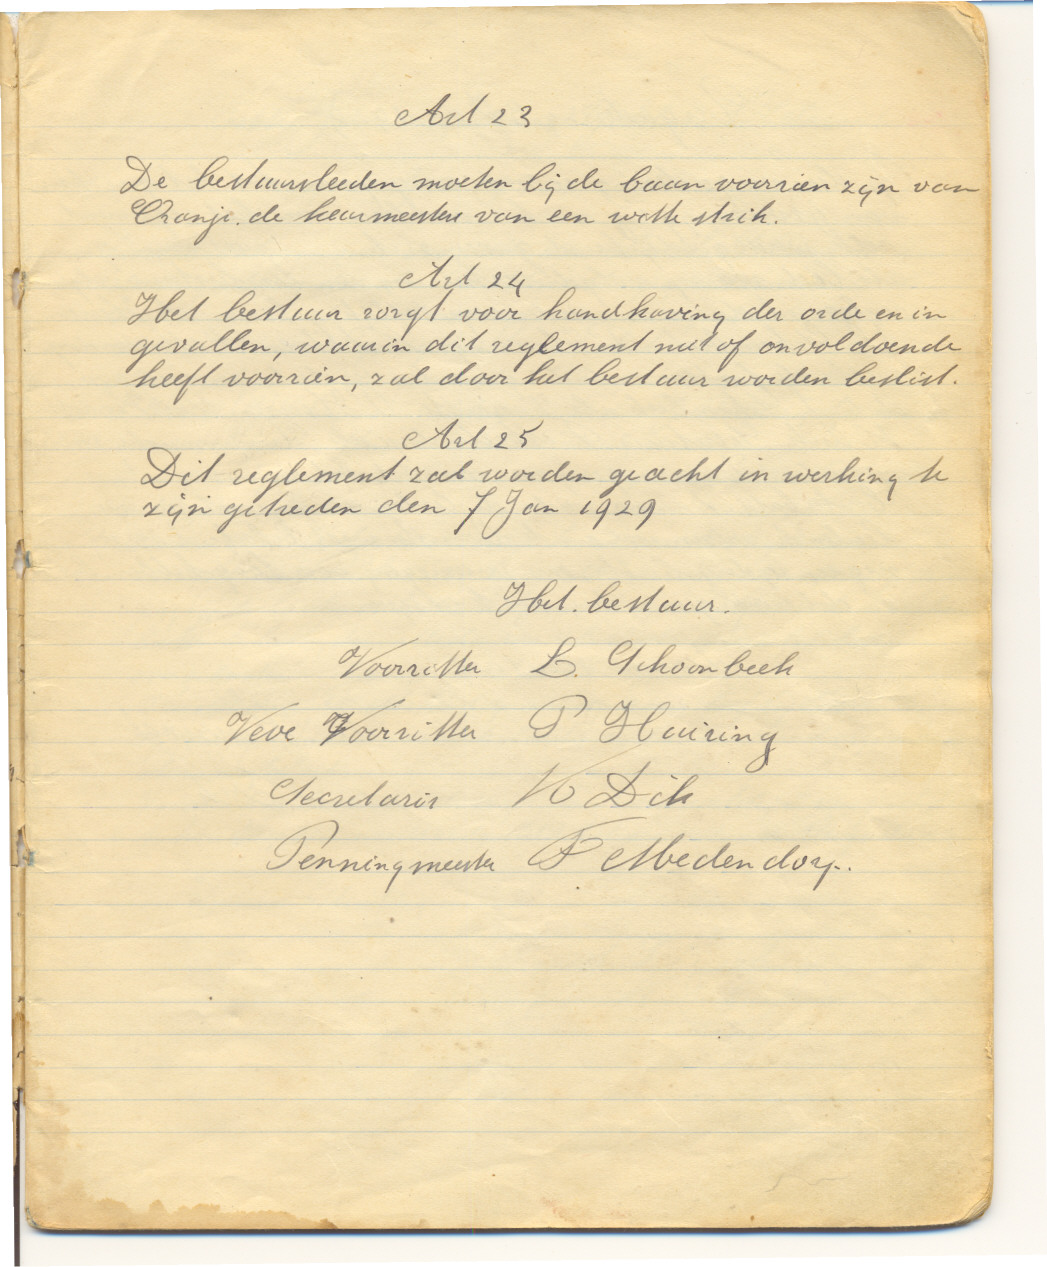 Art 23
De bestuursleeden moeten bij de baan voorzien zijn van
Oranje. de keurmeesters van een witte strik.
Art 24
Het bestuur zorgt voor handhaving der orde en in
gevallen, waarin dit reglement niet of onvoldoende
heeft voorzien, zal door het bestuur worden beslist.
Art 25
Dit reglement zal worden geacht in werking te
zijn getreden den 7 Jan 1929
Het. bestuur.
Voorzitter L. Schoonbeek
Voorzitter P Huizing
Secretaris K Dik
Penningmeester F Medendorp.